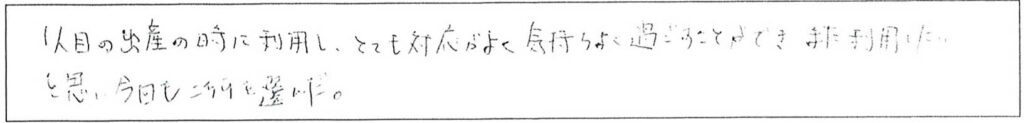 1人目の出産の時に利用し、とても対応がよく気持ちよく過ごすことができ また利用したい
と思い今回もこちらを選んだ。